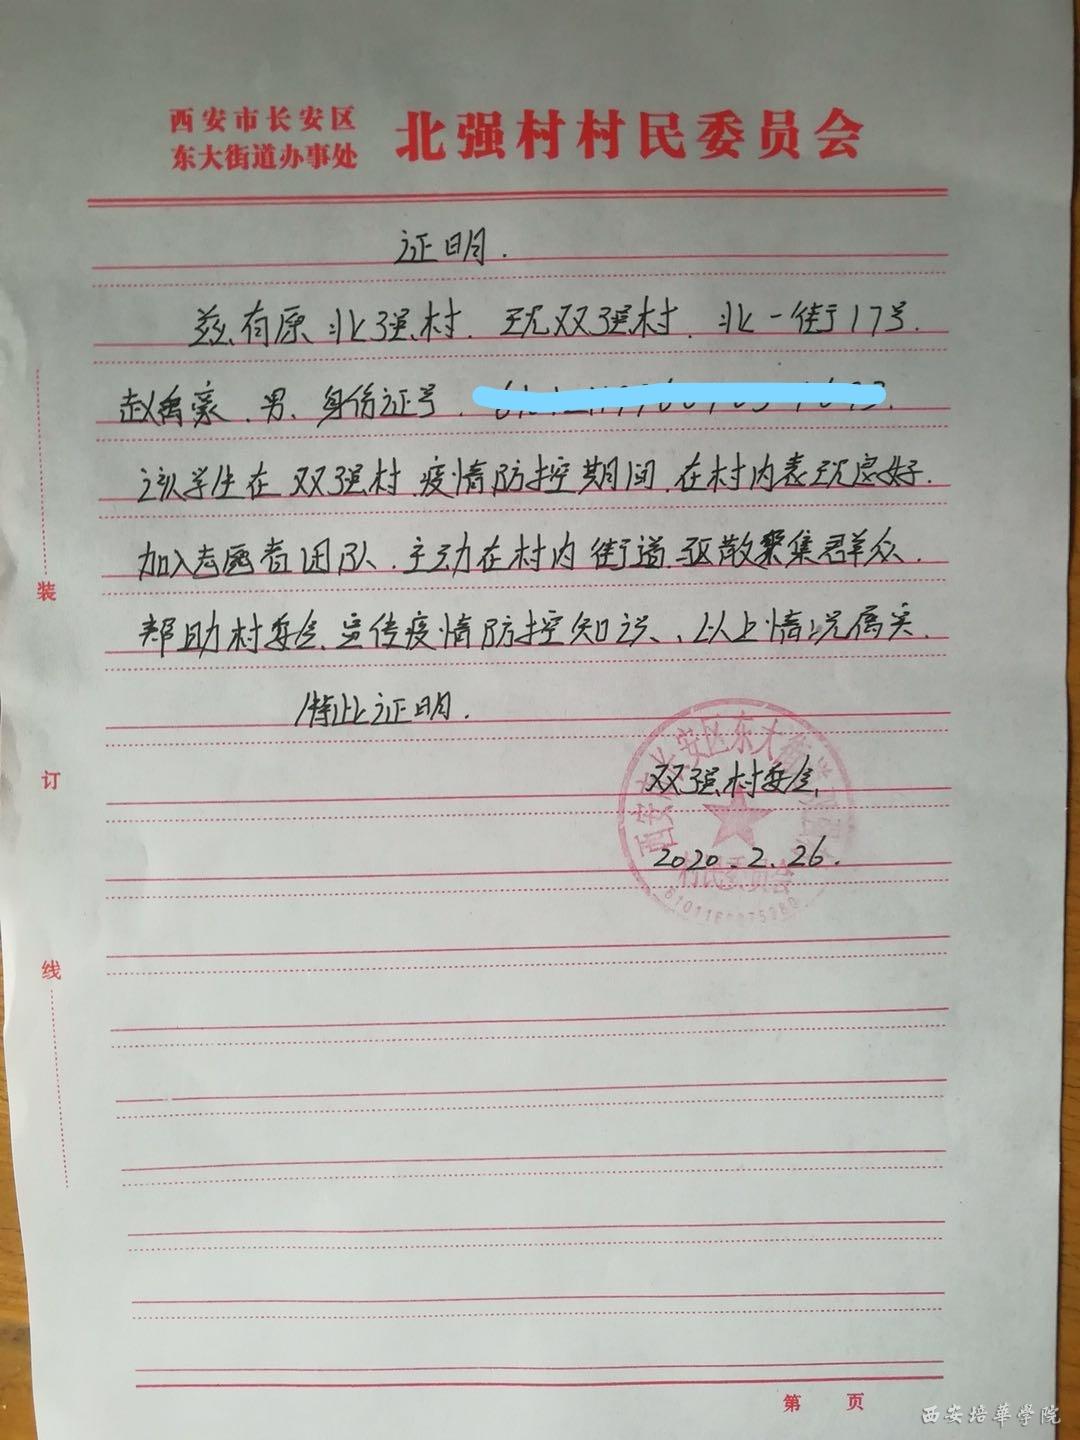 西安市长安区
东大街道办事处
北强村村民委员会
证明.
兹有原北强村.现双强村.北一街17号.
赵禹豪.男、身份证号.
该学生在双强村.疫情防控期间.在村内表现良好.
加入志愿者团队.主动在村内街道驱散聚集群众.
帮助村委会.宣传疫情防控知识、.以上情况属实.
特此证明.
双强村委会
2020.2.26.
西安市长安区东大街
村民委员会
装
订
线
第 页
西安培華学院